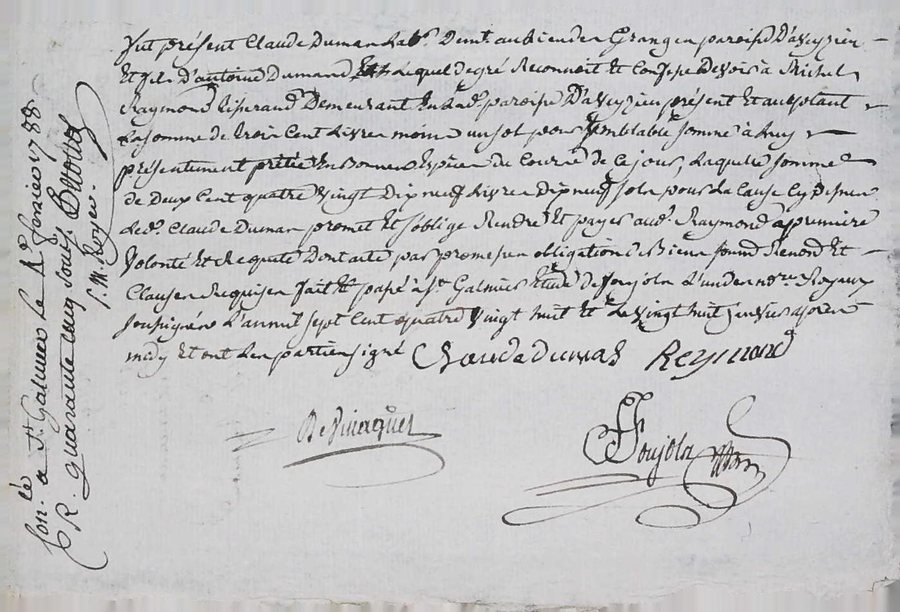 fut présent Claude Dumas Lab.r demt. au lieu des Granges paroisse D'aveyzieu
Et fils D'antoine Dumas lequel degré Reconnoit Et Confesse Devoir à Michel
Raymond Demeurant En lad. paroisse D'aveyzieu présent Et acceptant
La somme de Trois Cent Livres moins un sol pour semblable somme à luy
présentement prêtée En Bonnes Espèces Du Cours de ce jour, Laquelle somme
de Deux Cent quatre Vingt Dix neuf Livres Dix neuf sols pour La Cause Cy Dessus
Led. Claude Dumas promet Et s'oblige Rendre Et payer aud. Raymond à sa première
Volonté Et Requete Dont acte par promesses obligations Biens soumis Renond. Et
Clauses Requises fait Et passé à St. Galmier Etude de Poujols L'un des nres. Royaux
soussignés L'an mil sept Cent quatre Vingt huit Et Le Vingt huit janvier après
midy Et ont Les parties signé Claude Dumas Reymond
Poujols
Con.lé a St. Galmier Le février 1788
R. quarante cinq sous